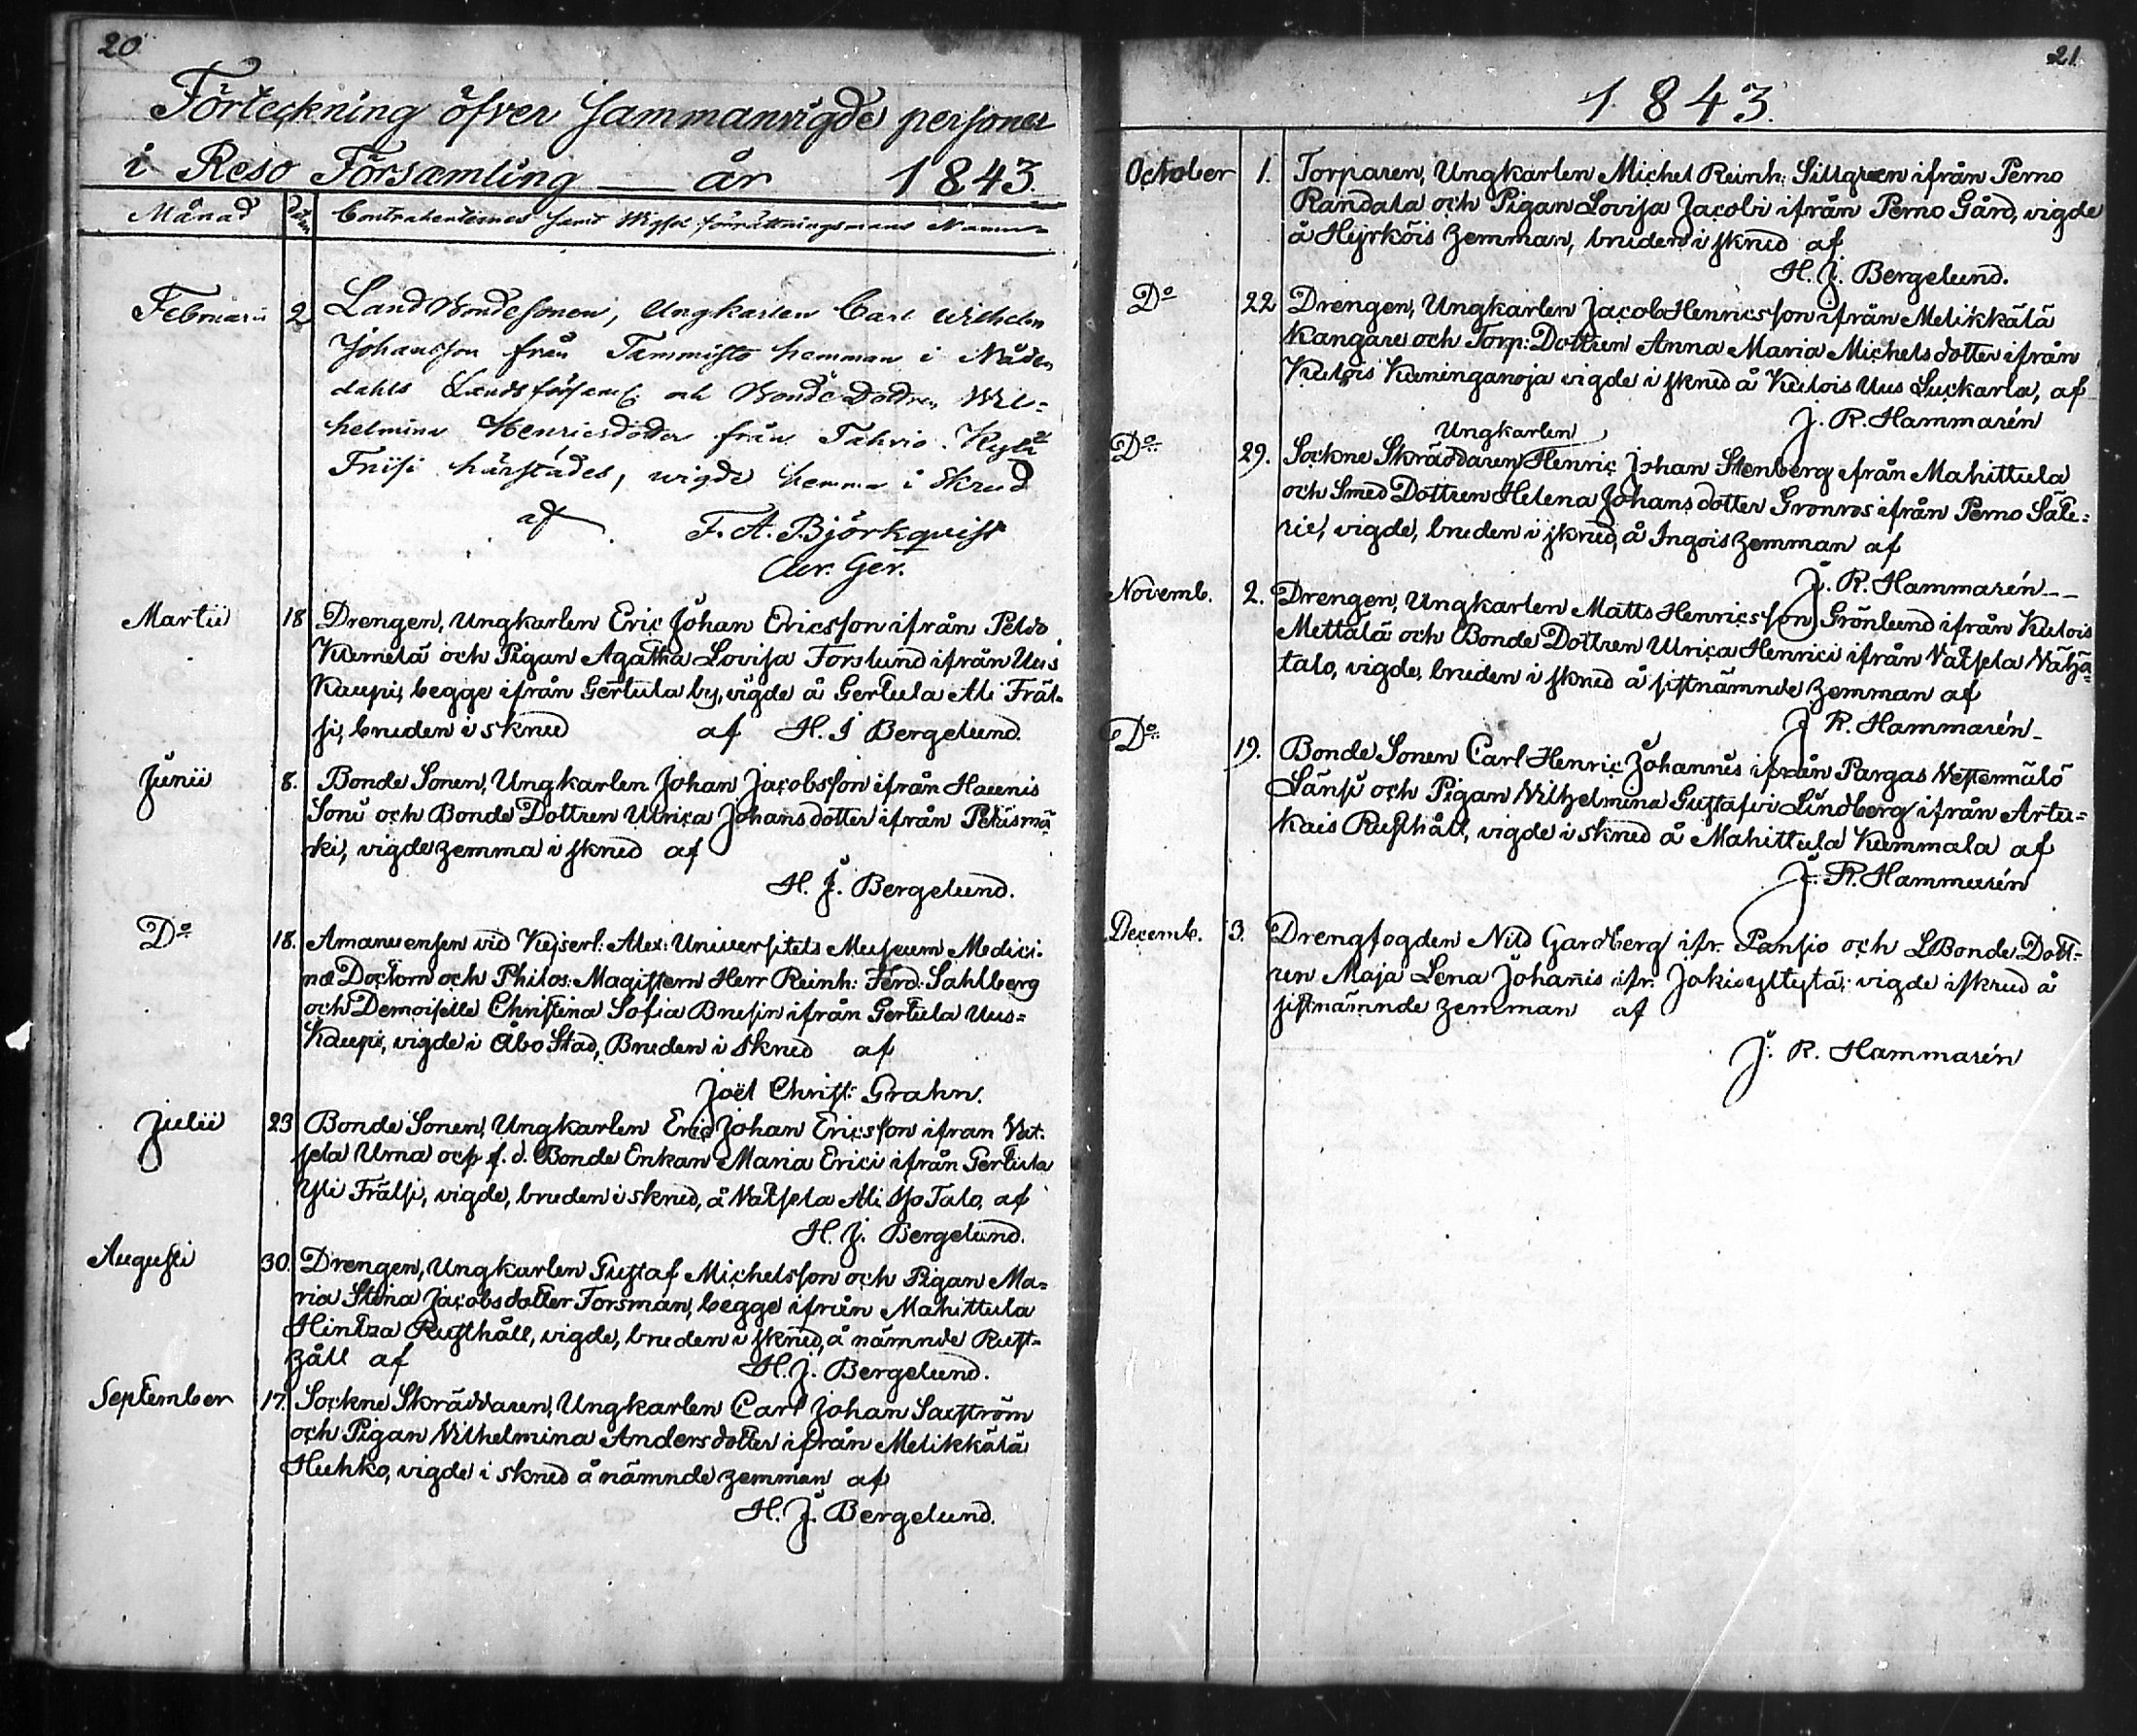 20
Förteckning öfver Sammanvigde personer
i Reso Församling — år 1843.
Månad Datum Contrahenternes samt Wigsel förrättningsmans Namn
Februarii 2 Landbondesonen, Ungkarlen Carl Wilhelm
Johansson från Tammisto hemman i Nåden
dahls Landsförsaml: och Bonde Dottren Wil=
helmina Henricsdotter från Tahvio Kylä
Friisi härstädes, wigde hemma i Skrud
af F. A. Björkqvist
Martii 18 Drengen, Ungkarlen Eric Johan Ericsson ifrån Peldo
Kumelä och Pigan Agatha Lovisa Forslund ifrån Uus
Kaupi, begge ifrån Gertula by, vigde å Gertula Ali Fräl-
si, bruden i skrud af H. J Bergelund.
Junii 8. Bonde Sonen, Ungkarlen Johan Jacobsson ifrån Haunis
Sonni och Bonde Dottren Ulrica Johansdotter ifrån Petäsmä
ki, vigde hemma i skrud af
H. J. Bergelund.
Do 18. Amanuensen vid Kejserl: Alex: Universitets Museum Medici-
næ Doctorn och Philos: Magistern Herr Reinh: Ferd: Sahlberg
och Demoiselle Christina Sofia Brusin ifrån Gertula Uus=
Kaupi, vigde i Åbo Stad, Bruden i skrud af
Joël Christ: Grahn.
Julii 23 Bonde Sonen, Ungkarlen Eric Johan Ericsson ifrån Vat-
sela Uma och f. d. Bonde Enkan Maria Erici ifrån Gertula
Yli Frälsi, vigde, bruden i skrud, å Vatsela Ali Iso Talo, af
H. J. Bergelund.
Augusti 30. Drengen, Ungkarlen Gustaf Michelsson och Pigan Ma=
ria Stina Jacobsdotter Forsman, begge ifrån Mahittula
Hintza Rusthåll, vigde, bruden i skrud, å nämnde Rust=
håll af H. J. Bergelund.
September 17. Sockne Skräddaren, Ungkarlen Carl Johan Saxström
och Pigan Vilhelmina Andersdotter ifrån Metikkälä
Huhko, vigde i skrud å nämnde hemman af
H. J. Bergelund.
21
1843.
October 1. Torparen, Ungkarlen Michel Reinh: Sillgren ifrån Perno
Randala och Pigan Lovisa Jacobi ifrån Perno Gård, vigde
å Hyrköis hemman, bruden i skrud af
H. J. Bergelund.
Do 22 Drengen, Ungkarlen Jacob Henricsson ifrån Metikkälä
Kangare och Torp: Dottren Anna Maria Michelsdotter ifrån
Kulois Kuninganoja vigde i skrud å Kulois Uus Luckarla, af
J. R. Hammarén
Ungkarlen
Do 29. Sockne Skräddaren Henric Johan Stenberg ifrån Mahittula
och Smed Dottren Helena Johansdotter Gronros ifrån Perno Säte=
rie, vigde, bruden i skrud, å Ingois hemman af
J. R. Hammarén
Novemb. 2. Drengen, Ungkarlen Matts Henricsson Grönlund ifrån Kulois
Mettälä och Bonde Dottren Ulrica Henrici ifrån Vatsela Vähä=
talo, vigde, bruden i skrud å sistnämnde hemman af
J R. Hammarén
Do 19. Bonde Sonen Carl Henric Johannis ifrån Pargas Vestermälö
Länsi och Pigan Vilhelmina Gustafvi Lindberg ifrån Artu=
kais Rusthåll, vigde i skrud å Mahittula Kummala af
J. R. Hammarén
Decemb. 3. Drengfogden Nils Gardberg ifr. Pansio och L Bonde Dott=
ren Maja Lena Johañis ifr. Jokisyltylä; vigde i skrud å
sistnämnde hemman af
J. R. Hammarén